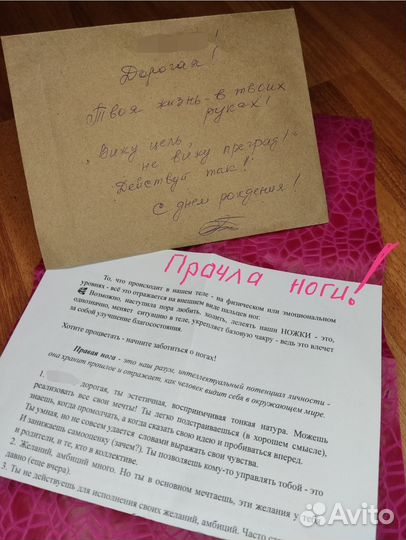 !
Дорогая!
Твоя жизнь-в твоих
руках!
"Вижу цель,
не вижу преград!"
Действуй так!
С днем рождения!
Прачла ноги!
То, что происходит в нашем теле - на физическом или эмоциональном
уровнях - всё это отражается на внешнем виде пальцев ног.
Возможно, наступила пора любить, холить, лелеять наши НОЖКИ - это,
однозначно, меняет ситуацию в теле, укрепляет базовую чакру - ведь это влечет
за собой улучшение благосостояния.
Хотите процветать - начните заботиться о ногах!
Правая нога - это наш разум, интеллектуальный потенциал личности -
она хранит прошлое и отражает, как человек видит себя в окружающем мире.
1. дорогая, ты эстетичная, восприимчивая тонкая натура. Можешь
реализовать все свои мечты! Ты легко подстраиваешься (в хорошем смысле),
знаешь, когда промолчать, а когда сказать свою идею и пробиваться вперед.
Ты умная, но не совсем удается словами выражать свои чувства.
И занижаешь самооценку (зачем?). Ты позволяешь кому-то управлять тобой - это
и родители, и те, кто в коллективе.
2. Желаний, амбиций много. Но ты в основном мечтаешь, эти желания у тебя
давно (еще вчера).
3. Ты не действуешь для исполнения своих желаний, амбиций. Часто
Avito